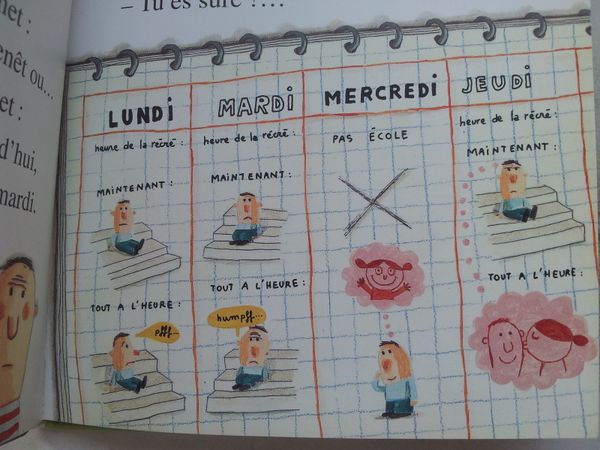 – Tu es sûre ?…
net :
enêt ou...
et :
d'hui,
mardi.
LUNDI
heure de la récré :
MAINTENANT :
TOUT A L'HEURE :
pfff...
MARDI
heure de la récré :
MAINTENANT :
TOUT A L'HEURE :
humpff...
MERCREDI
PAS ÉCOLE
JEUDI
heure de la récré :
MAINTENANT :
TOUT A L'HEURE :